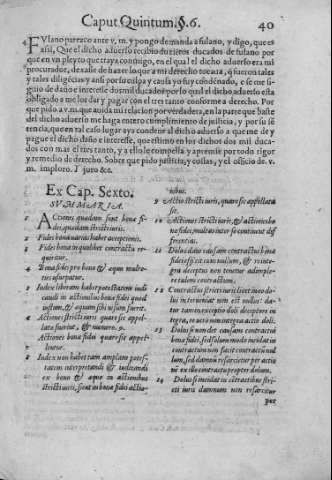 Caput Quintum. §. 6. 40
4 FUlano parezco ante v. m. y pongo demanda a fulano, y digo, que es
assi, Que el dicho aduerso recibio dozientos ducados de fulano por
que en vn pleyto que traya conmigo, en el qual el dicho aduerso era mi
procurador, dexasse de hazer lo que a mi derecho tocaua, q̃ fueron tales y
tales diligencias y ansi por su culpa y causa yo fuy condenado, e se me si-
guio de daño e interesse dos mil ducados por lo qual el dicho aduerso esta
obligado a me los dar y pagar con el tres tanto conforme a derecho. Por
que pido a v. m. que auida mi relacion por verdadera, en la parte que baste
del dicho aduerso me haga entero cumplimiento de justicia, y por su se
tencia, que en tal caso lugar aya condene al dicho aduerso a que me de y
pague el dicho daño e interesse, que estimo en los dichos dos mil duca-
dos con mas el tres tanto, y a ello le compella y apremie por todo rigor
y remedio de derecho. Sobre que pido justicia, y costas, y el officio de v.
m. imploro. I juro &c.
Ex Cap. Sexto.
SVMMARIA.
1 ACtiones quædam sunt bonæ fi-
dei, quædam stricti iuris.
2 Fides bona varias habet acceptiones.
3 Fides bona in quolibet contractu re-
quiritur.
4 Bona fides pro bono & æquo multo-
ties vsurpatur.
5 Iudex liberam habet potestatem iudi
candi in actionibus bonæ fidei quod
iustum, & æquum sibi visum fuerit.
6 Actiones stricti iuris quare sic appel-
latæ fuerint, & numero. 9.
7 Actiones bonæ fidei quare sic appel-
lentur.
8 Iudex non habet tam amplam potes-
tatem interpretandi & iudicandi
ex bono & æquo in actionibus
stricti iuris, sicut in bonæ fidei actio-
nibus.
9 Actio stricti iuris, quare sic appellata
sit.
10 Actiones stricti iuris, & actiones bo
næ fidei, multis inter se continent dif
ferentias.
11 Dolus dans causam contractui bonæ
fidei efficit eum nullum, & reinte-
gra deceptus non tenetur adimple-
re talem contractum.
12 Contractus stricti iuris licet ineo do-
lus interueniat non est nullus: da-
tur tamen excepto doli deceptore in
repta, re uero non integra actio doli.
13 Dolus si non det causam contractui
bonæ fidei, sed solum modo incidat in
contractum non facit contractũ nul
lum, sed damnũ resarcitur per actio
nẽ ex illo contractu propter dolum.
14 Dolus si incidat in cõtractibus stri-
cti iuris damnum non resarcitur
per